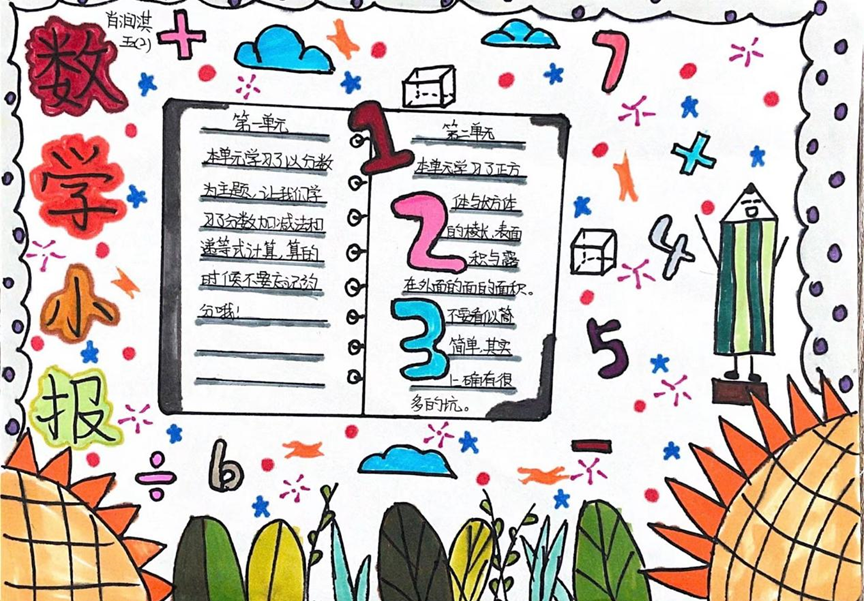 肖润淇
五(2)
数
学
小
报
第一单元
本单元学习了以分数
为主题,让我们学
习了分数加减法和
递等式计算,算的
时候不要忘记约
分哦!
第二单元
本单元学习了正方
体与长方体
的棱长.表面
积与露
在外面的面的面积。
不要看似简
简单.其实
上确有很
多的坑。
+
1
2
3
7
+
4
5
-
÷
6